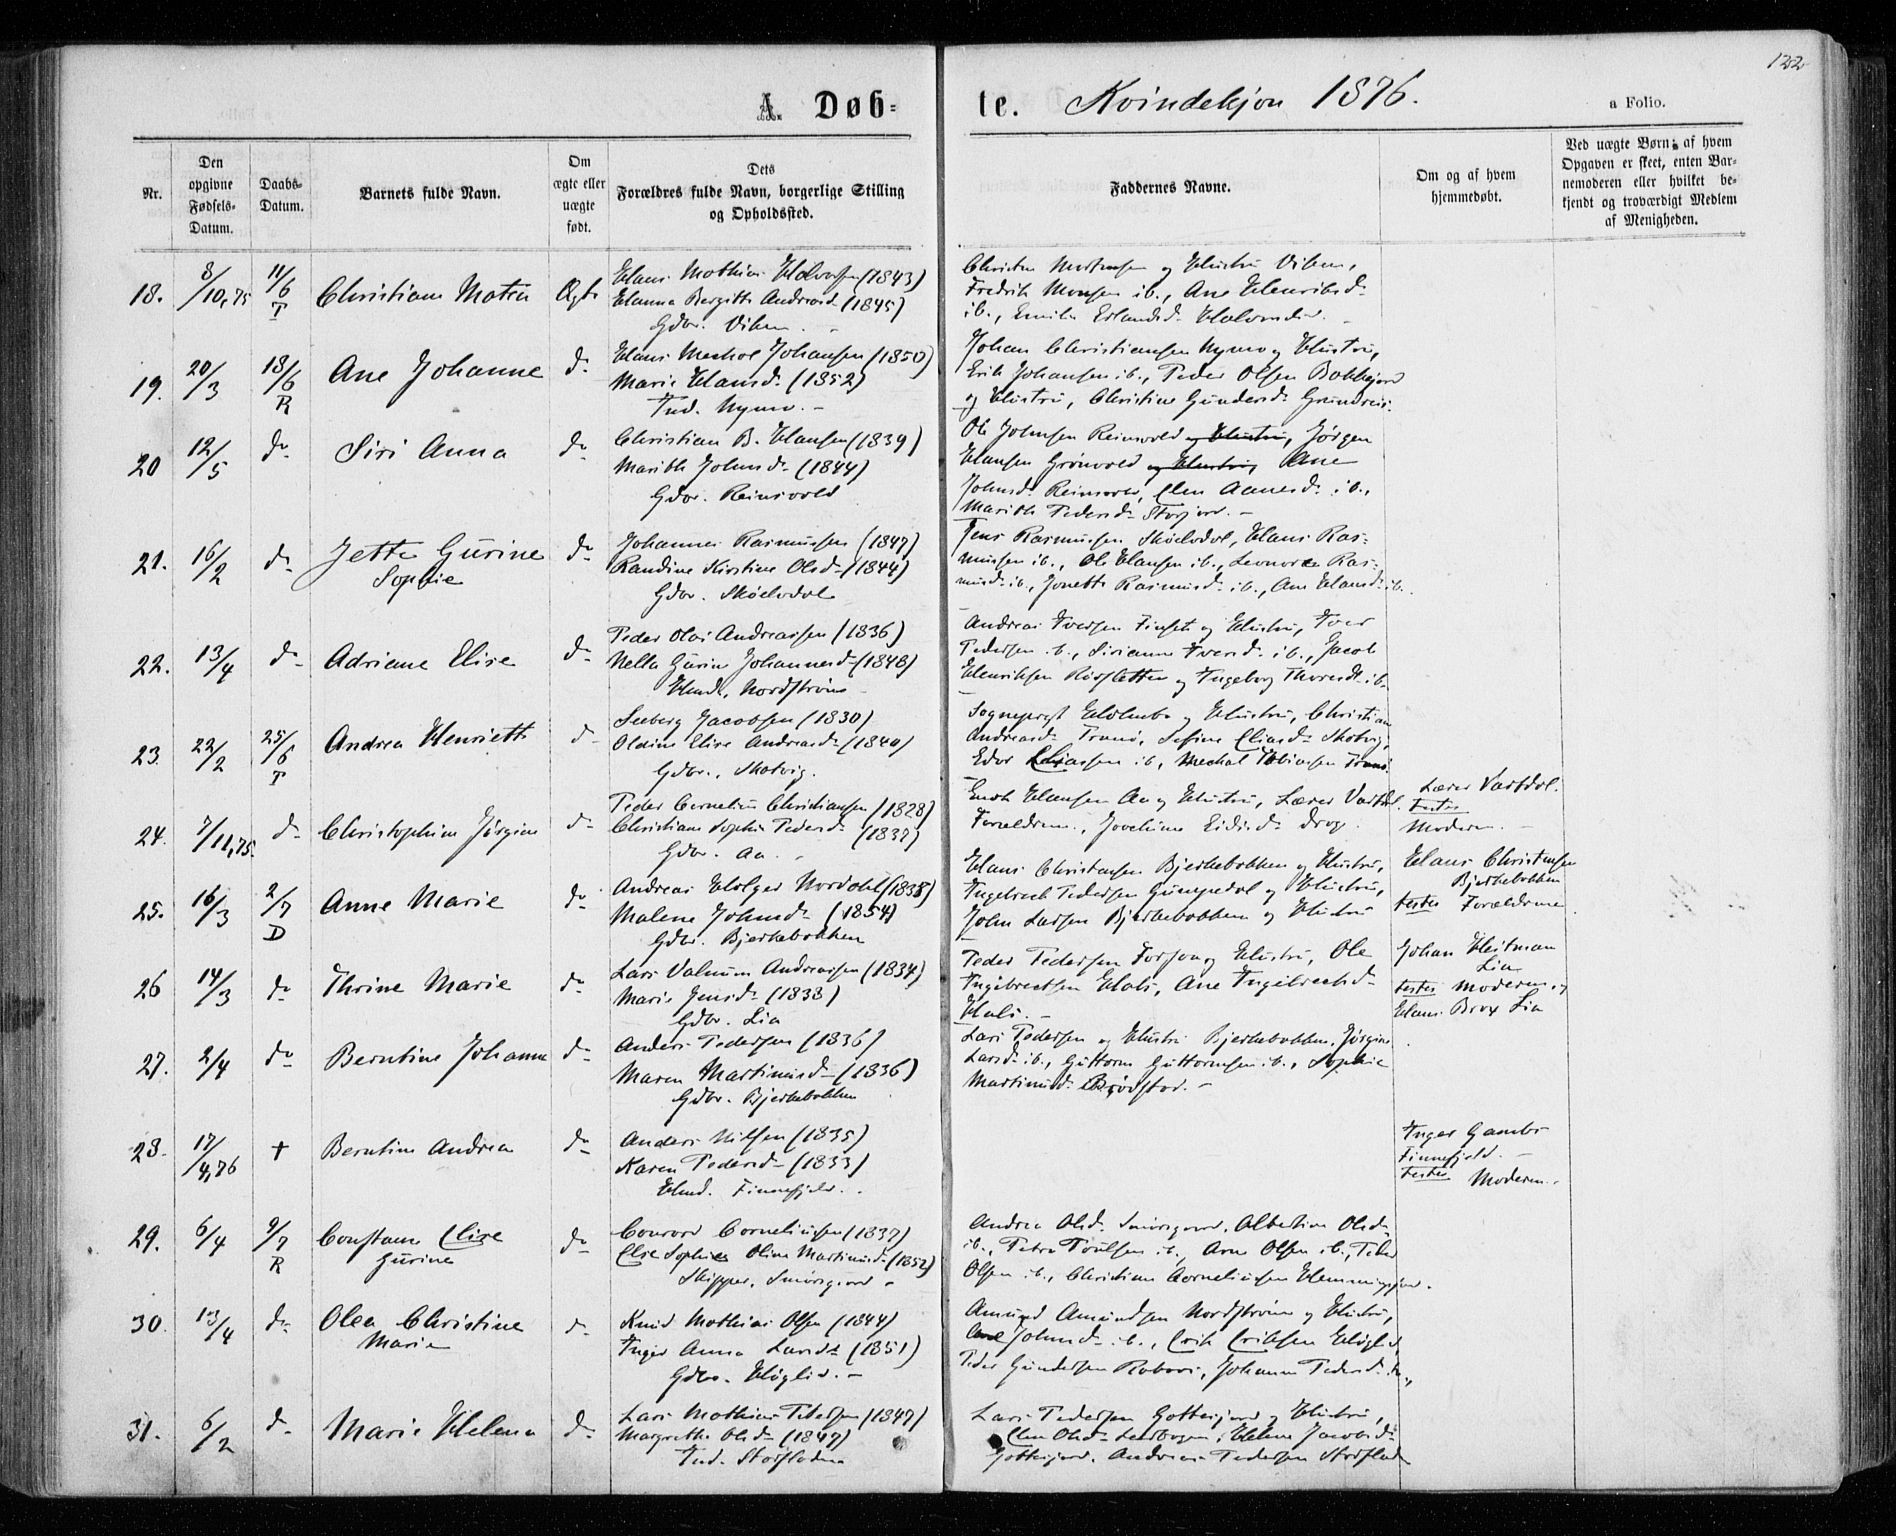 122
A. Døb=
te. Kvindekjøn 1876.
a Folio.
Nr.
Den opgivne Fødsels-Datum.
Daabs-Datum.
Barnets fulde Navn.
Om ægte eller uægte født.
Dets Forældres fulde Navn, borgerlige Stilling og Opholdssted.
Faddernes Navne.
Om og af hvem hjemmedøbt.
Ved uægte Børn: af hvem Opgaven er skeet, enten Barnemoderen eller hvilket bekjendt og troværdigt Medlem af Menigheden.
18. 8/10,75 11/6 T Christiane Matea Ægte
Hans Mathias Halvorsen (1843)
Hanna Bergitte Andreasd. (1845)
Gdbr. Viken.
og Hustru Viken,
Fredrik Monsen ib., Ane Henriksd.
ib., Emilie Erlandsd.
19. 20/3 18/6 R Ane Johanne do
Hans Mechal Johansen (1850)
Marie Hansd. (1852)
Ind. Nymo.
Johan Christiansen Nymo og Hustru,
Erik Johansen ib., Peder Olsen
og Hustru, Christine Gundersd. Grundreis.
20 12/5 do Siri Anna do
Christian B. Hansen (1839)
Marith Johnsd. (1844)
Gdbr. Reinsvold
Ole Johnsen Reinsvold og Hustru, Jørgen
Hansen Grønvold og Hustru, Ane
Johnsd. Reinsvold, Elen Aanesd. ib.,
Marith Pedersd. Storjord.
21. 16/2 do Jette Gurine
Sophie do
Johannes Rasmussen (1847)
Randine Kirstine Olsd. (1844)
Gdbr. Skøelvdal
Jens Rasmussen Skøelvdal, Hans Ras-
mussen ib., Ole Hansen ib., Leonore Ras-
musd. ib., Jonette Rasmusd. ib., Ane Hansd. ib.
22. 13/4 do Adriane Elise do
Peder Olai Andreassen (1836)
Nella Gurine Johannesd. (1848)
Hmd. Nordstrøm
Andreas Iversen Finset og Hustru, Iver
Pedersen ib., Sirianna Iversd. ib., Jacob
Henriksen Rosletten og Ingeborg Thoresd. ib.
23. 22/2 25/6 T Andrea Henriette do
Seeberg Jacobsen (1830)
Oldine Elise Andreasd. (1840)
Gdbr., Skotvig.
Sogneprest Holmbo og Hustru, Christian
Andreasd. Tranø, Eliasd. Skotvig,
Edor Eliassen ib, Mechal Tobiassen Tranø.
24. 7/11,75. do Christophine Jørgine do
Peder Cornelius Christiansen (1828)
Christiane Sophie Pedersd. (1837)
Gdbr. Aa.
Enok Hansen Aa og Hustru, Lærer Vartdal.
Forældrene, Jochime Eidisd. Drog.
Lærer Vartdal.
testes
Moderen.
25. 16/3 2/7 D Anne Marie do
Andreas Holger Nordahl (1838)
Malene Johnsd. (1854)
Gdbr. Bjerkebakken
Hans Christensen Bjerkebakken og Hustru,
Ingebrecht Pedersen Gumpedal og Hustru,
John Larsen Bjerkebakken og Hustru
Hans Christensen
Bjerkebakken
testes Forældrene
26 14/3 do Thrine Marie do
Lars Valnum Andreassen (1834)
Maris Jensd. (1838)
Gdbr. Lia
Peder Pedersen Forson og Hustru, Ole
Ingebrechtsen Hals, Ane Ingebrechtsd.
Hals.
Johan Heitman
Lia
testes Moderen og
Hans Brox Lia
27. 2/4 do Berntine Johanne do
Anders Pedersen (1836)
Maren Martinusd. (1836)
Gdbr. Bjerkebakken
Lars Pedersen og Hustru Bjerkebakken, Jørgine
Larsd. ib., Guttorm Guttormsen ib., Sophie
Martinusd. Brødstad.
28. 17/4,76 † Berntine Andrea do
Anders Nilsen (1835)
Karen Pedersd. (1833)
Hmd. Finnefjeld.
Inger Gambo
Finnefjeld.
testes Moderen.
29. 6/4 9/7 R Constance Elise
Gurine do
Conrad Corneliussen (1837)
Elise Sophie Oline Martinusd. (1852)
Skipper, Smørsgaard
Andrea Olsd. Smørsgaard, Albertine Olsd.
ib., Petra Poulsen ib., Arne Olsen ib., Peder
Olsen ib., Christian Corneliussen Hemmingsjord.
30. 13/4 do Olea Christine
Marie do
Knud Mathias Olsen (1844)
Inger Anna Larsd. (1851)
Gdbr. Høglid.
Amund Amundsen Nordstrøm og Hustru,
Ane Johnsd. ib., Erik Eriksen Høglid,
Peder Gundersen, Johanna Pedersd.
31. 6/2 do Marie Helena do
Lars Mathias Pedersen (1847)
Margrethe Olsd. (1847)
Ind. Storsladen
Lars Pedersen Gottesjord og Hustru,
Elen Olsd., Helene Jacobsd.
Gottesjord, Andreas Pedersen